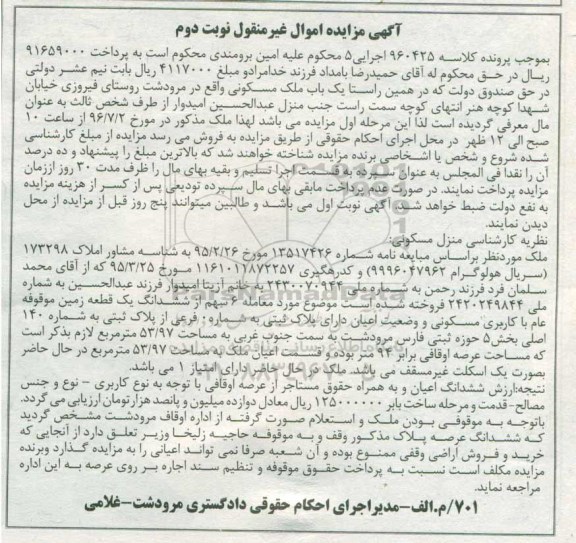 آگهی مزایده اموال غیرمنقول نوبت دوم
بموجب پرونده کلاسه ۹۶۰۴۲۵ اجرایی۵ محکوم علیه امین برومندی محکوم است به پرداخت ۹۱۶۵۹۰۰۰
ریال در حق محکوم له آقای حمیدرضا بامداد فرزند خدامرادو مبلغ ۴۱۱۷۰۰۰ ریال بابت نیم عشر دولتی
در حق صندوق دولت که در همین راستا یک باب ملک مسکونی واقع در مرودشت روستای فیروزی خیابان
شهدا کوچه هنر انتهای کوچه سمت راست جنب منزل عبدالحسین امیدوار از طرف شخص ثالث به عنوان
مال معرفی گردیده است لذا این مرحله اول مزایده می باشد لهذا ملک مذکور در مورخ ۹۶/۷/۲ از ساعت ۱۰
صبح الی ۱۲ ظهر در محل اجرای احکام حقوقی از طریق مزایده به فروش می رسد مزایده از مبلغ کارشناسی
شده شروع و شخص یا اشخاصی برنده مزایده شناخته خواهند شد که بالاترین مبلغ را پیشنهاد و ده درصد
آن را نقدا فی المجلس به عنوان سپرده به قسمت اجرا تسلیم و بقیه بهای مال را ظرف مدت ۳۰ روز اززمان
مزایده پرداخت نمایند. در صورت عدم پرداخت مابقی بهای مال سپرده تودیعی پس از کسر از هزینه مزایده
به نفع دولت ضبط خواهد شد و آگهی نوبت اول می باشد و طالبین میتوانند پنج روز قبل از مزایده از محل
دیدن نمایند.
نظریه کارشناسی منزل مسکونی:
ملک موردنظر براساس مبایعه نامه شماره ۱۳۵۱۷۴۲۶ مورخ ۹۵/۲/۲۶ به شناسه مشاور املاک ۱۷۳۲۹۸
(سریال هولوگرام ۹۹۹۶۰۴۷۹۶۲) و کدرهگیری ۱۱۶۱۰۱۱۸۷۲۲۵۷ مورخ ۹۵/۳/۲۵ که از آقای محمد
سلمان فرد فرزند رحمن به شماره ملی ۲۴۳۰۰۷۰۹۴۴ به خانم آزیتا امیدوار فرزند عبدالحسین به شماره
ملی ۲۴۲۰۲۴۹۸۴۴ فروخته شده است موضوع مورد معامله ۶ سهم از ششدانگ یک قطعه زمین موقوفه
عام با کاربری مسکونی و وضعیت اعیان دارای پلاک ثبتی به شماره۰ فرعی از پلاک ثبتی به شماره ۱۴۰
اصلی بخش۵ حوزه ثبتی فارس مرودشت به سمت جنوب غربی به مساحت ۵۳/۹۷ مترمربع لازم بذکر است
که مساحت عرصه اوقافی برابر ۹۴ متر بوده و قسمت اعیان ملک به مساحت ۵۳/۹۷ مترمربع در حال حاضر
بصورت یک اسکلت غیرمسقف می باشد. ملک در حال حاضر دارای امتیاز ۱ می باشد.
نتیجه:ارزش ششدانگ اعیان و به همراه حقوق مستاجر از عرصه اوقافی با توجه به نوع کاربری - نوع و جنس
مصالح-قدمت و مرحله ساخت بابر ۱۲۵۰۰۰۰۰۰ ریال معادل دوازده میلیون و پانصد هزارتومان ارزیابی می گردد.
باتوجه به موقوفی بودن ملک و استعلام صورت گرفته از اداره اوقاف مرودشت مشخص گردید
که ششدانگ عرصه پلاک مذکور وقف و به موقوفه حاجیه زلیخا وزیر تعلق دارد از آنجایی که
خرید و فروش آراضی وقفی ممنوع بوده و آن شعبه صرفا نمی تواند اعیانی را به مزایده گذارد وبرنده
مزایده مکلف است نسبت به پرداخت حقوق موقوفه و تنظیم سند اجاره بر روی عرصه به این اداره
مراجعه نماید.
۷۰۱/م.الف-مدیراجرای احکام حقوقی دادگستری مرودشت-غلامی